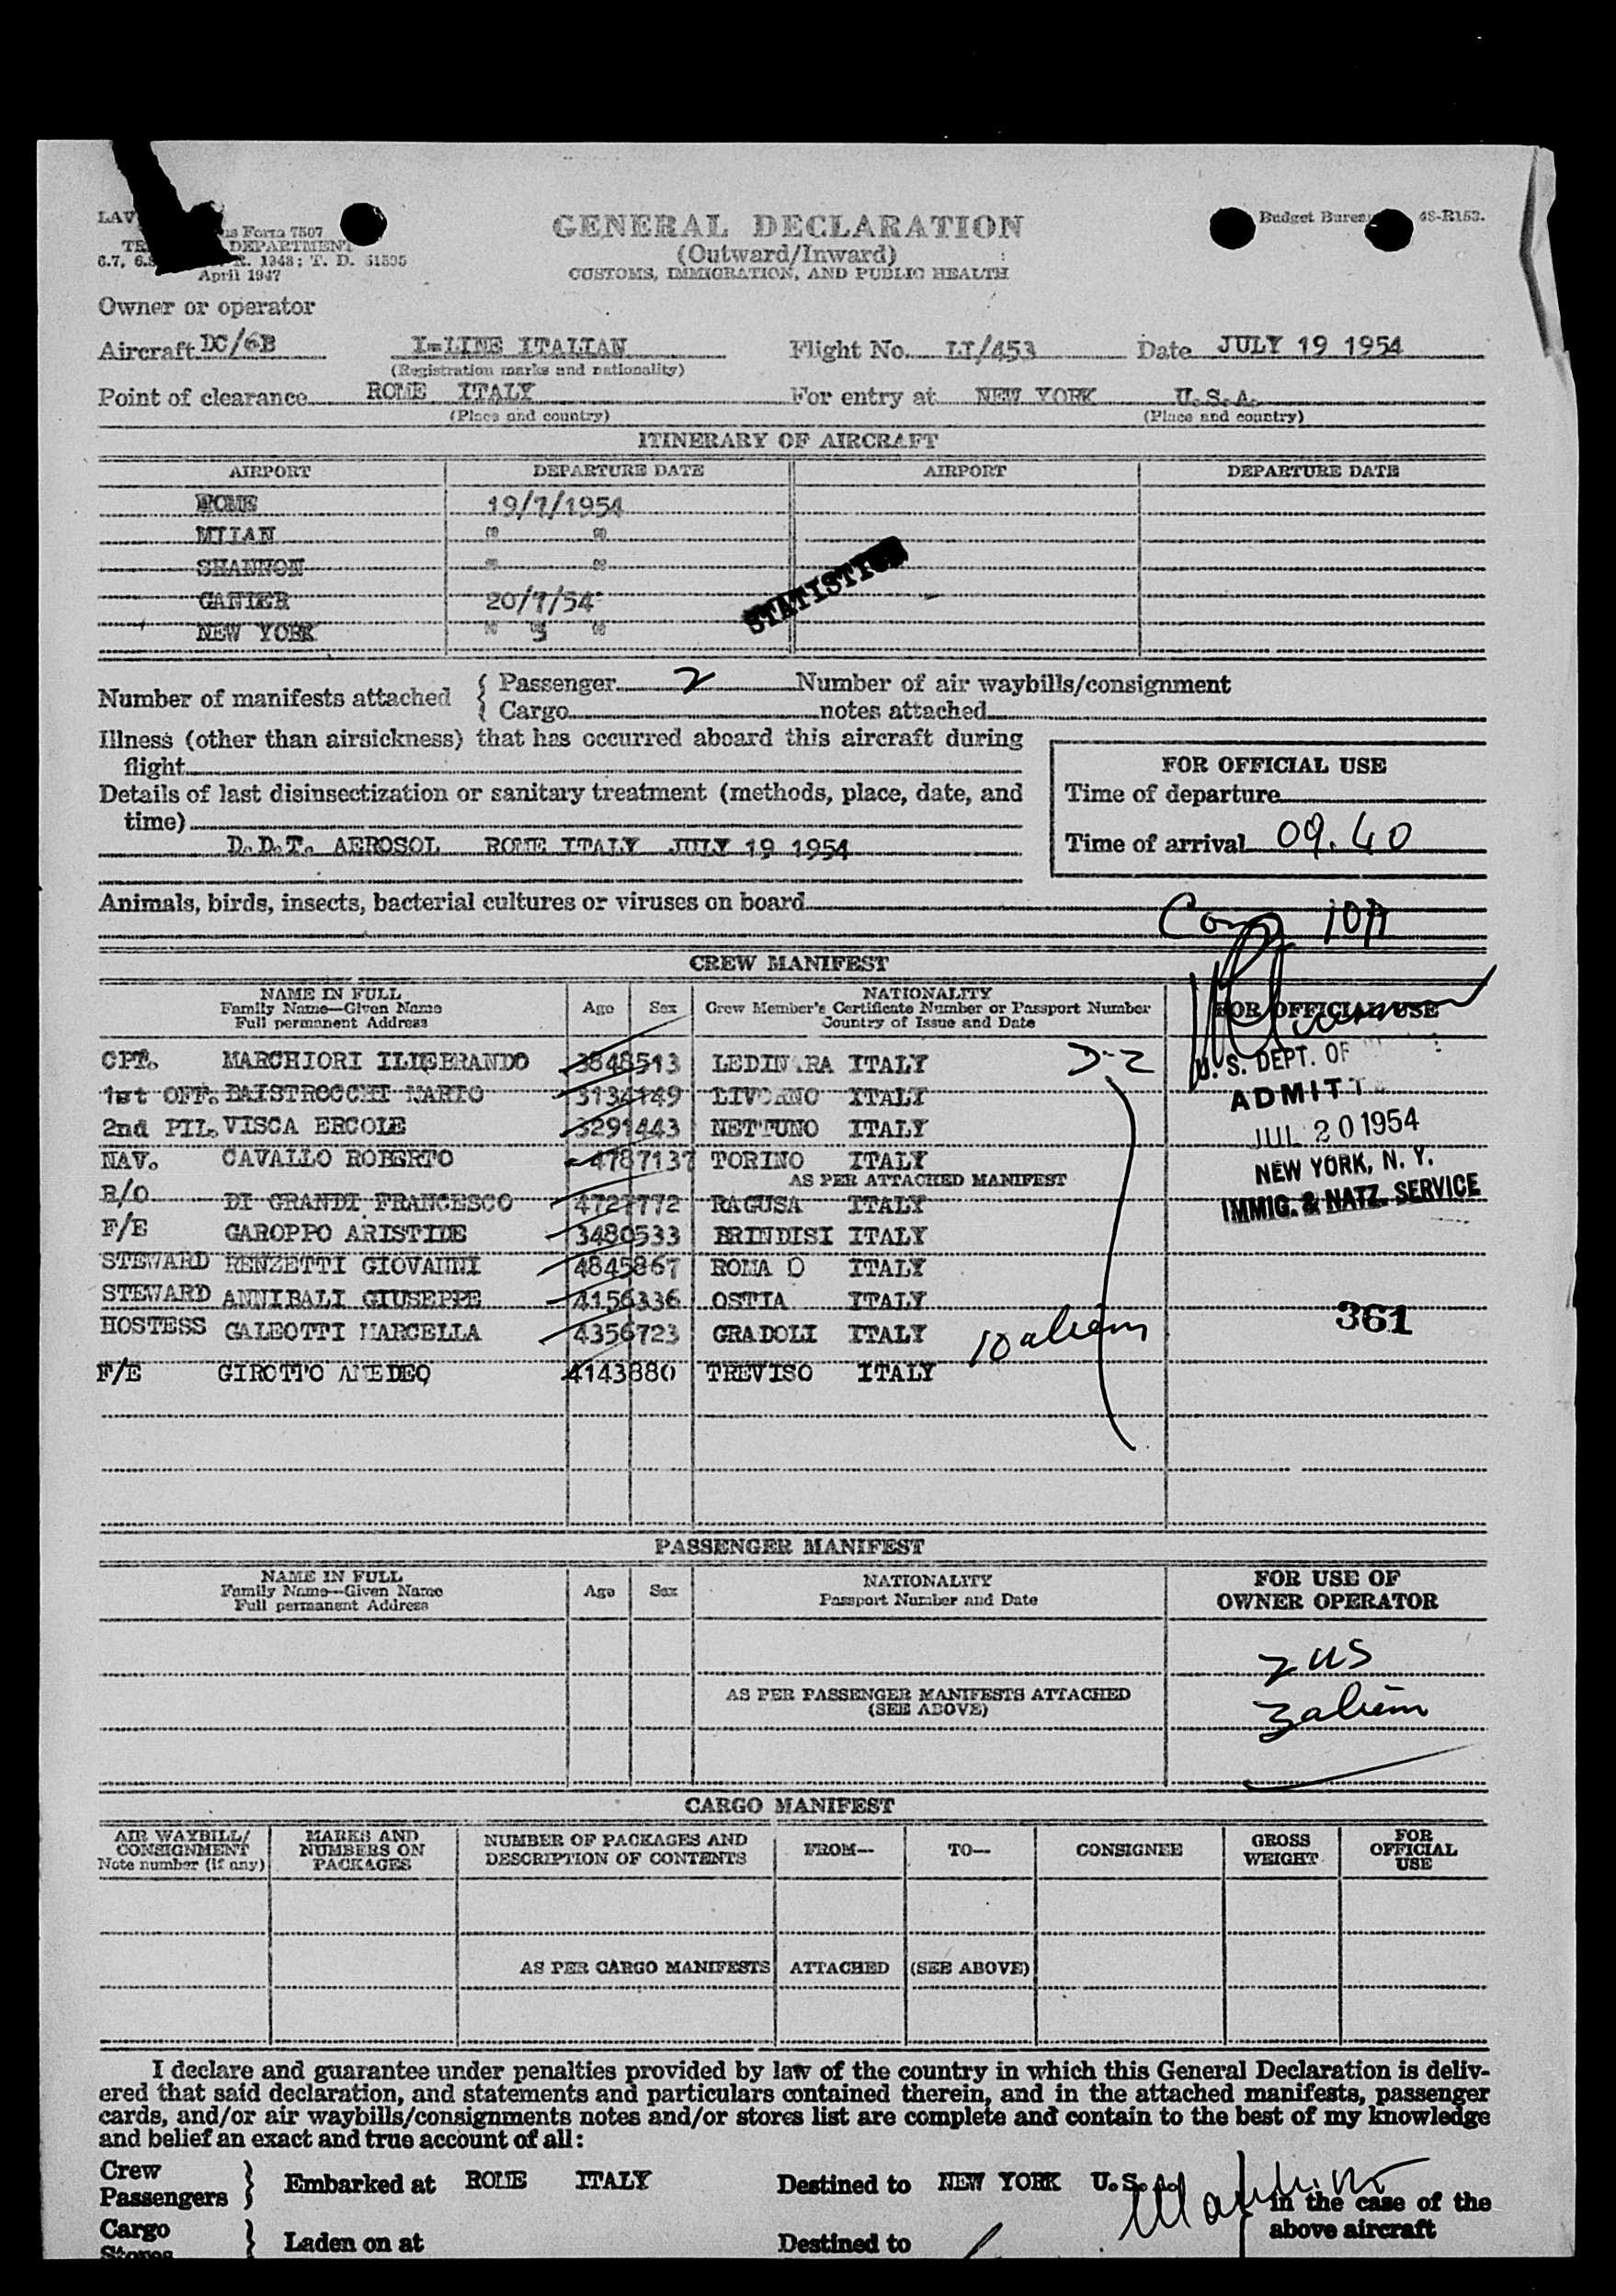 GENERAL DECLARATION
(Outward/Inward)
CUSTOMS, IMMIGRATION, AND PUBLIC HEALTH
LAV
Form 7507
DEPARTMENT
1948; T. D. 51595
April 1947
Budget Bureau 48-R153.
Owner or operator
Aircraft DC/6B I-LINE ITALIAN Flight No. LI/453 Date JULY 19 1954
(Registration marks and nationality)
Point of clearance ROME ITALY For entry at NEW YORK U.S.A.
(Place and country) (Place and country)
ITINERARY OF AIRCRAFT
AIRPORT DEPARTURE DATE AIRPORT DEPARTURE DATE
ROME 19/7/1954
MILAN " "
SHANNON " "
GANDER 20/7/54
NEW YORK " "
STATISTICS
Number of manifests attached { Passenger 2 Number of air waybills/consignment
Cargo notes attached
Illness (other than airsickness) that has occurred aboard this aircraft during
flight
Details of last disinsectization or sanitary treatment (methods, place, date, and
time)
D.D.T. AEROSOL ROME ITALY JULY 19 1954
FOR OFFICIAL USE
Time of departure
Time of arrival 09.40
Animals, birds, insects, bacterial cultures or viruses on board
CREW MANIFEST
NAME IN FULL Age Sex NATIONALITY FOR OFFICIAL USE
Family Name—Given Name Crew Member's Certificate Number or Passport Number
Full permanent Address Country of Issue and Date
CPT. MARCHIORI ILDEBRANDO 3848513 ITALY D-2
1st OFF. BAISTROCCHI MARIO 3134149 LIVORNO ITALY
2nd PIL. VISCA ERCOLE 3291443 NETTUNO ITALY
NAV. CAVALLO ROBERTO 4787137 TORINO ITALY
AS PER ATTACHED MANIFEST
R/O DI GRANDI FRANCESCO 4727772 RAGUSA ITALY
F/E GAROPPO ARISTIDE 3480533 BRINDISI ITALY
STEWARD RENZETTI GIOVANNI 4845867 ROMA ITALY
STEWARD ANNIBALI GIUSEPPE 4156336 OSTIA ITALY
HOSTESS GALEOTTI MARCELLA 4356723 GRADOLI ITALY 10 aliens
F/E GIROTTO AMEDEO 4143880 TREVISO ITALY
U. S. DEPT. OF
ADMITT
JUL 20 1954
NEW YORK, N. Y.
IMMIG. & NATZ. SERVICE
361
PASSENGER MANIFEST
NAME IN FULL Age Sex NATIONALITY FOR USE OF
Family Name—Given Name Passport Number and Date OWNER OPERATOR
Full permanent Address
2 US
AS PER PASSENGER MANIFESTS ATTACHED
(SEE ABOVE)
3 aliens
CARGO MANIFEST
AIR WAYBILL/ MARKS AND NUMBER OF PACKAGES AND FROM— TO— CONSIGNEE GROSS FOR
CONSIGNMENT NUMBERS ON DESCRIPTION OF CONTENTS WEIGHT OFFICIAL
Note number (if any) PACKAGES USE
AS PER CARGO MANIFESTS ATTACHED (SEE ABOVE)
I declare and guarantee under penalties provided by law of the country in which this General Declaration is deliv-
ered that said declaration, and statements and particulars contained therein, and in the attached manifests, passenger
cards, and/or air waybills/consignments notes and/or stores list are complete and contain to the best of my knowledge
and belief an exact and true account of all:
Crew
Passengers } Embarked at ROME ITALY Destined to NEW YORK U.S.A. in the case of the
above aircraft
Cargo
Stores } Laden on at Destined to